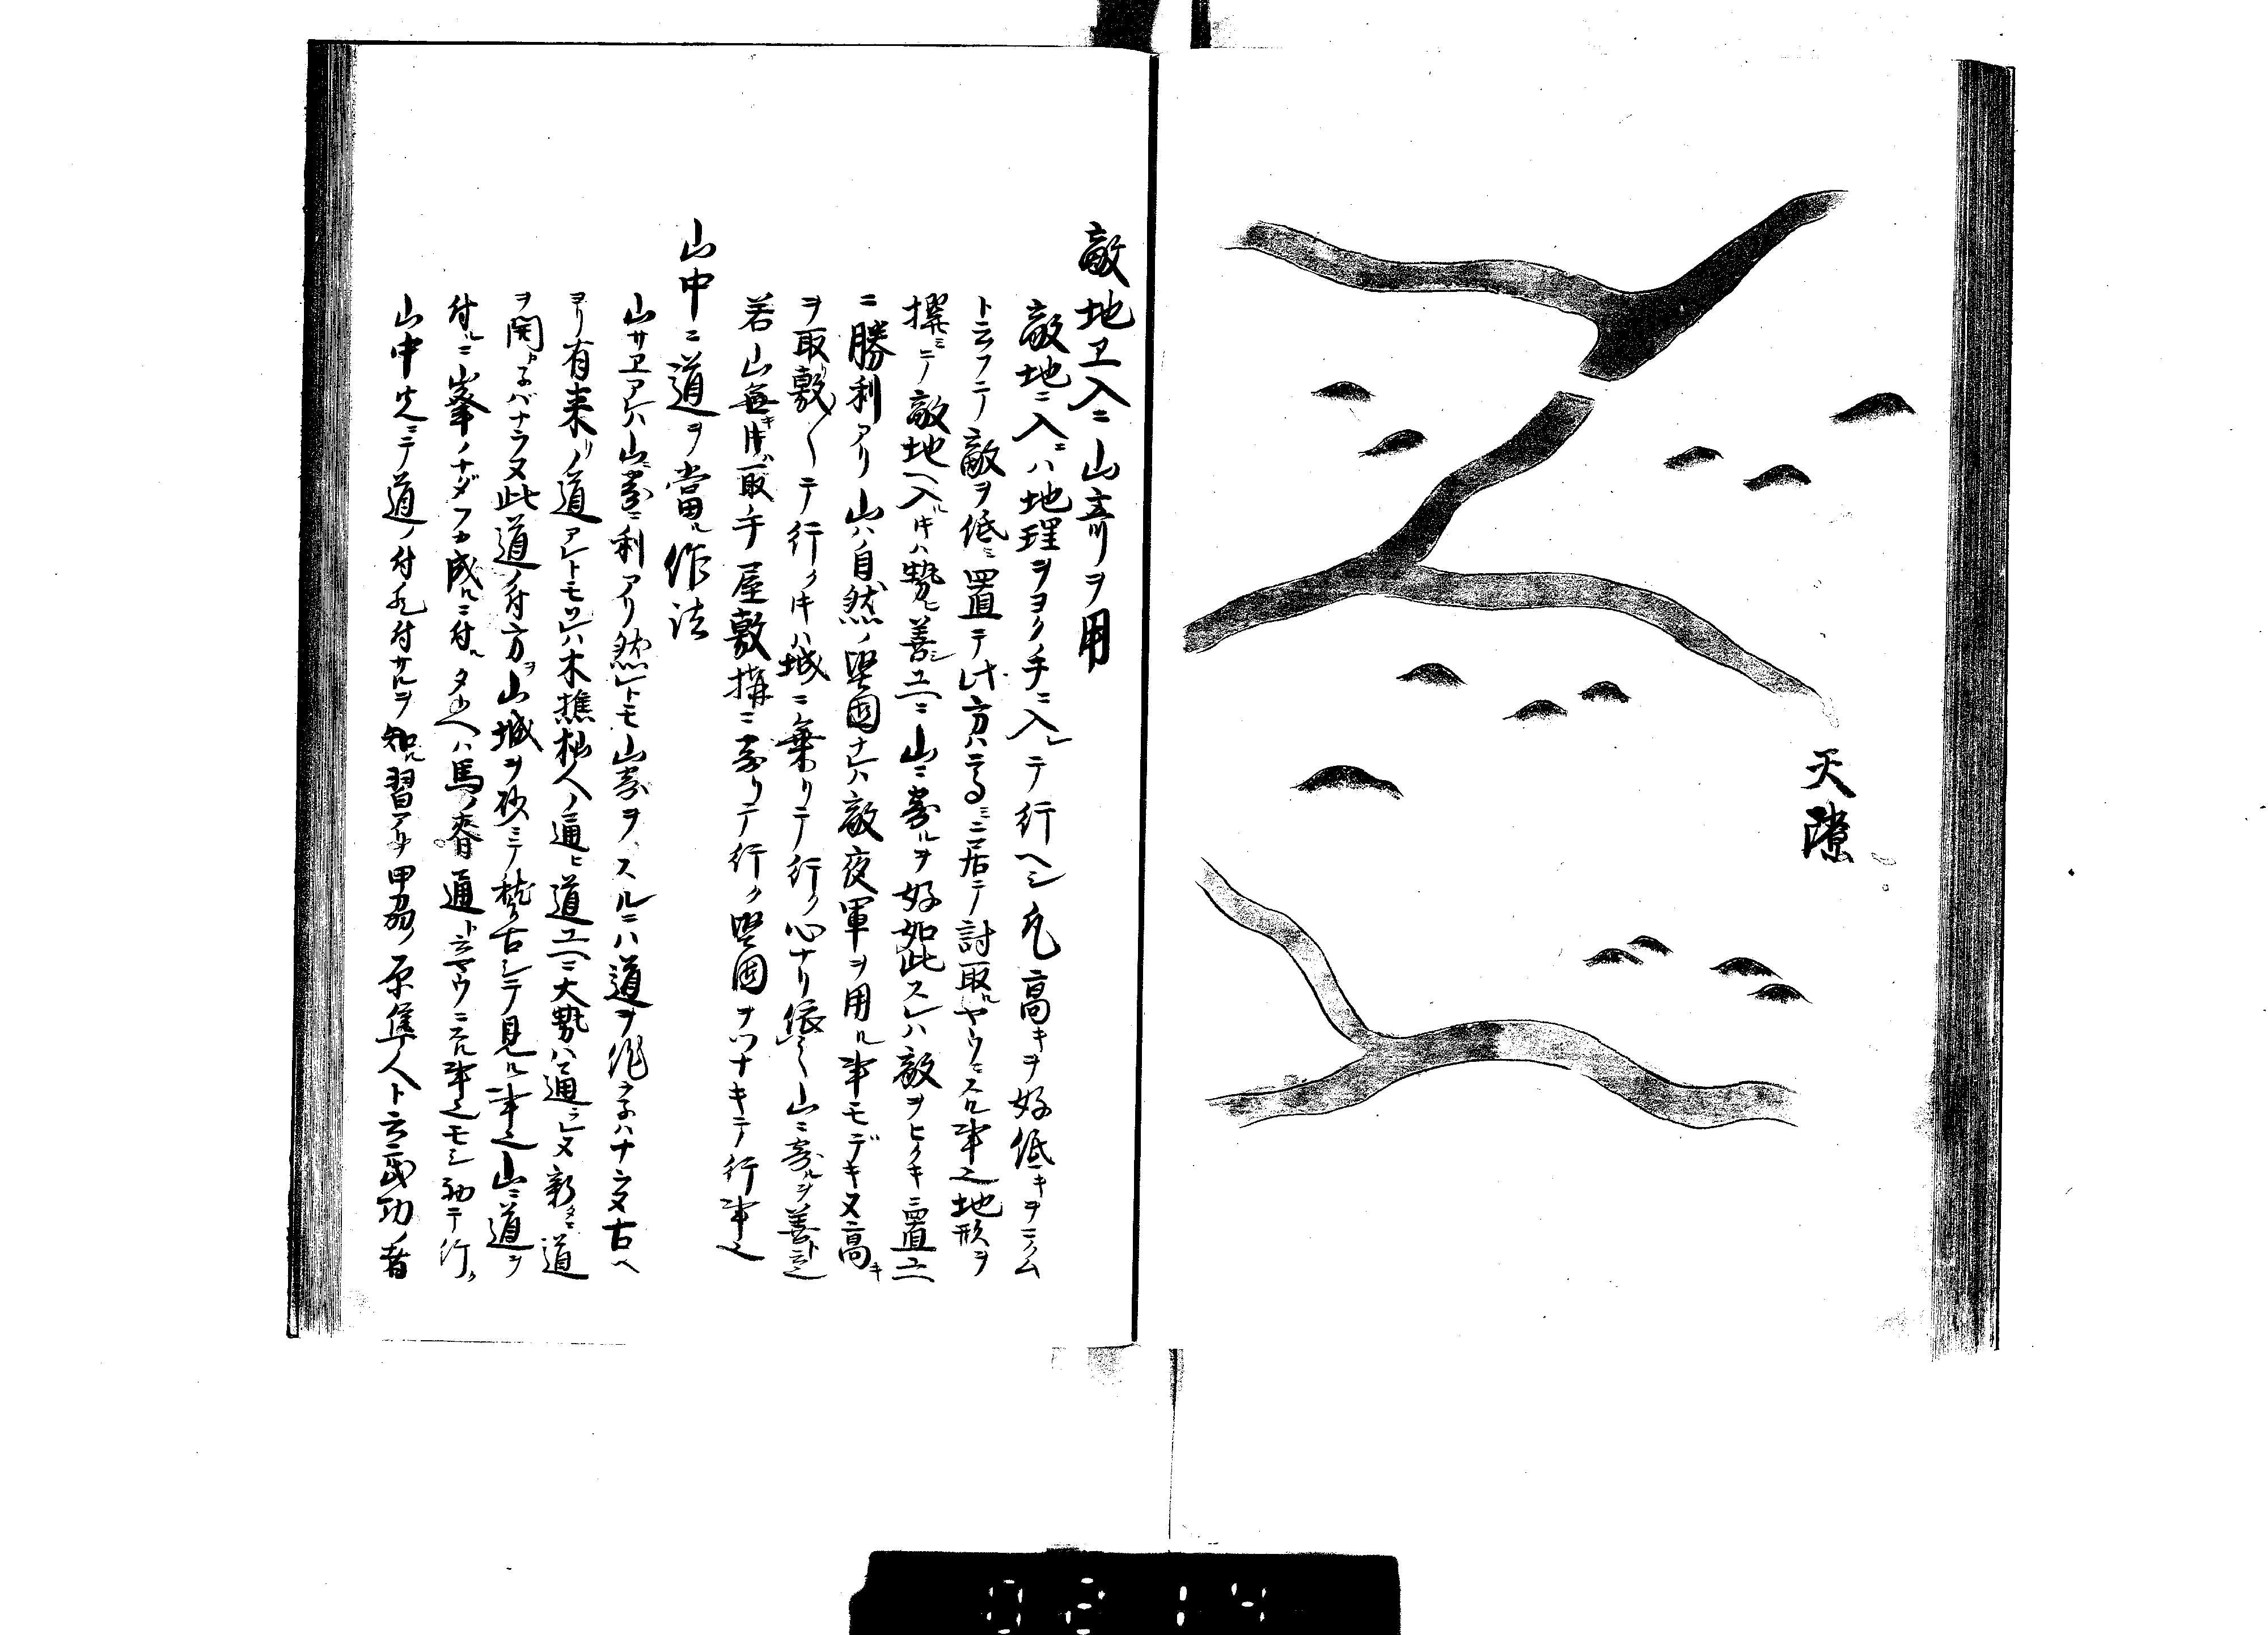 天隙
敵地ヱ入ニ山寄リヲ用
敵地ニ入ニハ地理ヲヨク手ニ入レテ行ヘシ凡高キヲ好低キヲニクム
ト云フテ敵ヲ低ミニ置テ此方ハ高ミニ居テ討取ルヤウニスル事也地形ヲ
撰ミニテ敵地ヘ入ルキハ勢ヒ善シユヘニ山ニ寄ルヲ好如此スレハ敵ヲヒクキニ置ユヘ
ニ勝利アリ山ハ自然ノ堅固ナレハ敵夜軍ヲ用ル事モデキヌ高キ
ヲ取敷〱テ行クキハ城ニ乗リテ行ク心ナリ依之山ニ寄ルヲ善ト云也
若山無キキバ取手屋敷構ニ寄リテ行ク堅固ヲツナキテ行事也
山中ニ道ヲ當ル作法
山サヱアレハ山寄ニ利アリ然レトモ山寄ヲスルニハ道ヲ作ラ子ハナラヌ古ヘ
ヨリ有来リノ道アレトモソレハ木樵杣人ノ通ヒ道ユヘニ大勢ハ通ラレヌ新タニ道
ヲ開カ子バナラヌ此道ノ付方ヲ山城ヲ
古シテ見ル事也山ニ道ヲ
付ルニ峯ノナダフカ成ルニ付ル
ハ馬ノ脊通ト云ヤウニスル事也モシ
テ行ク
山中
ニテ道ノ付凡付サルヲ知ル習アリ甲刕ノ原隼人ト云武功ノ者